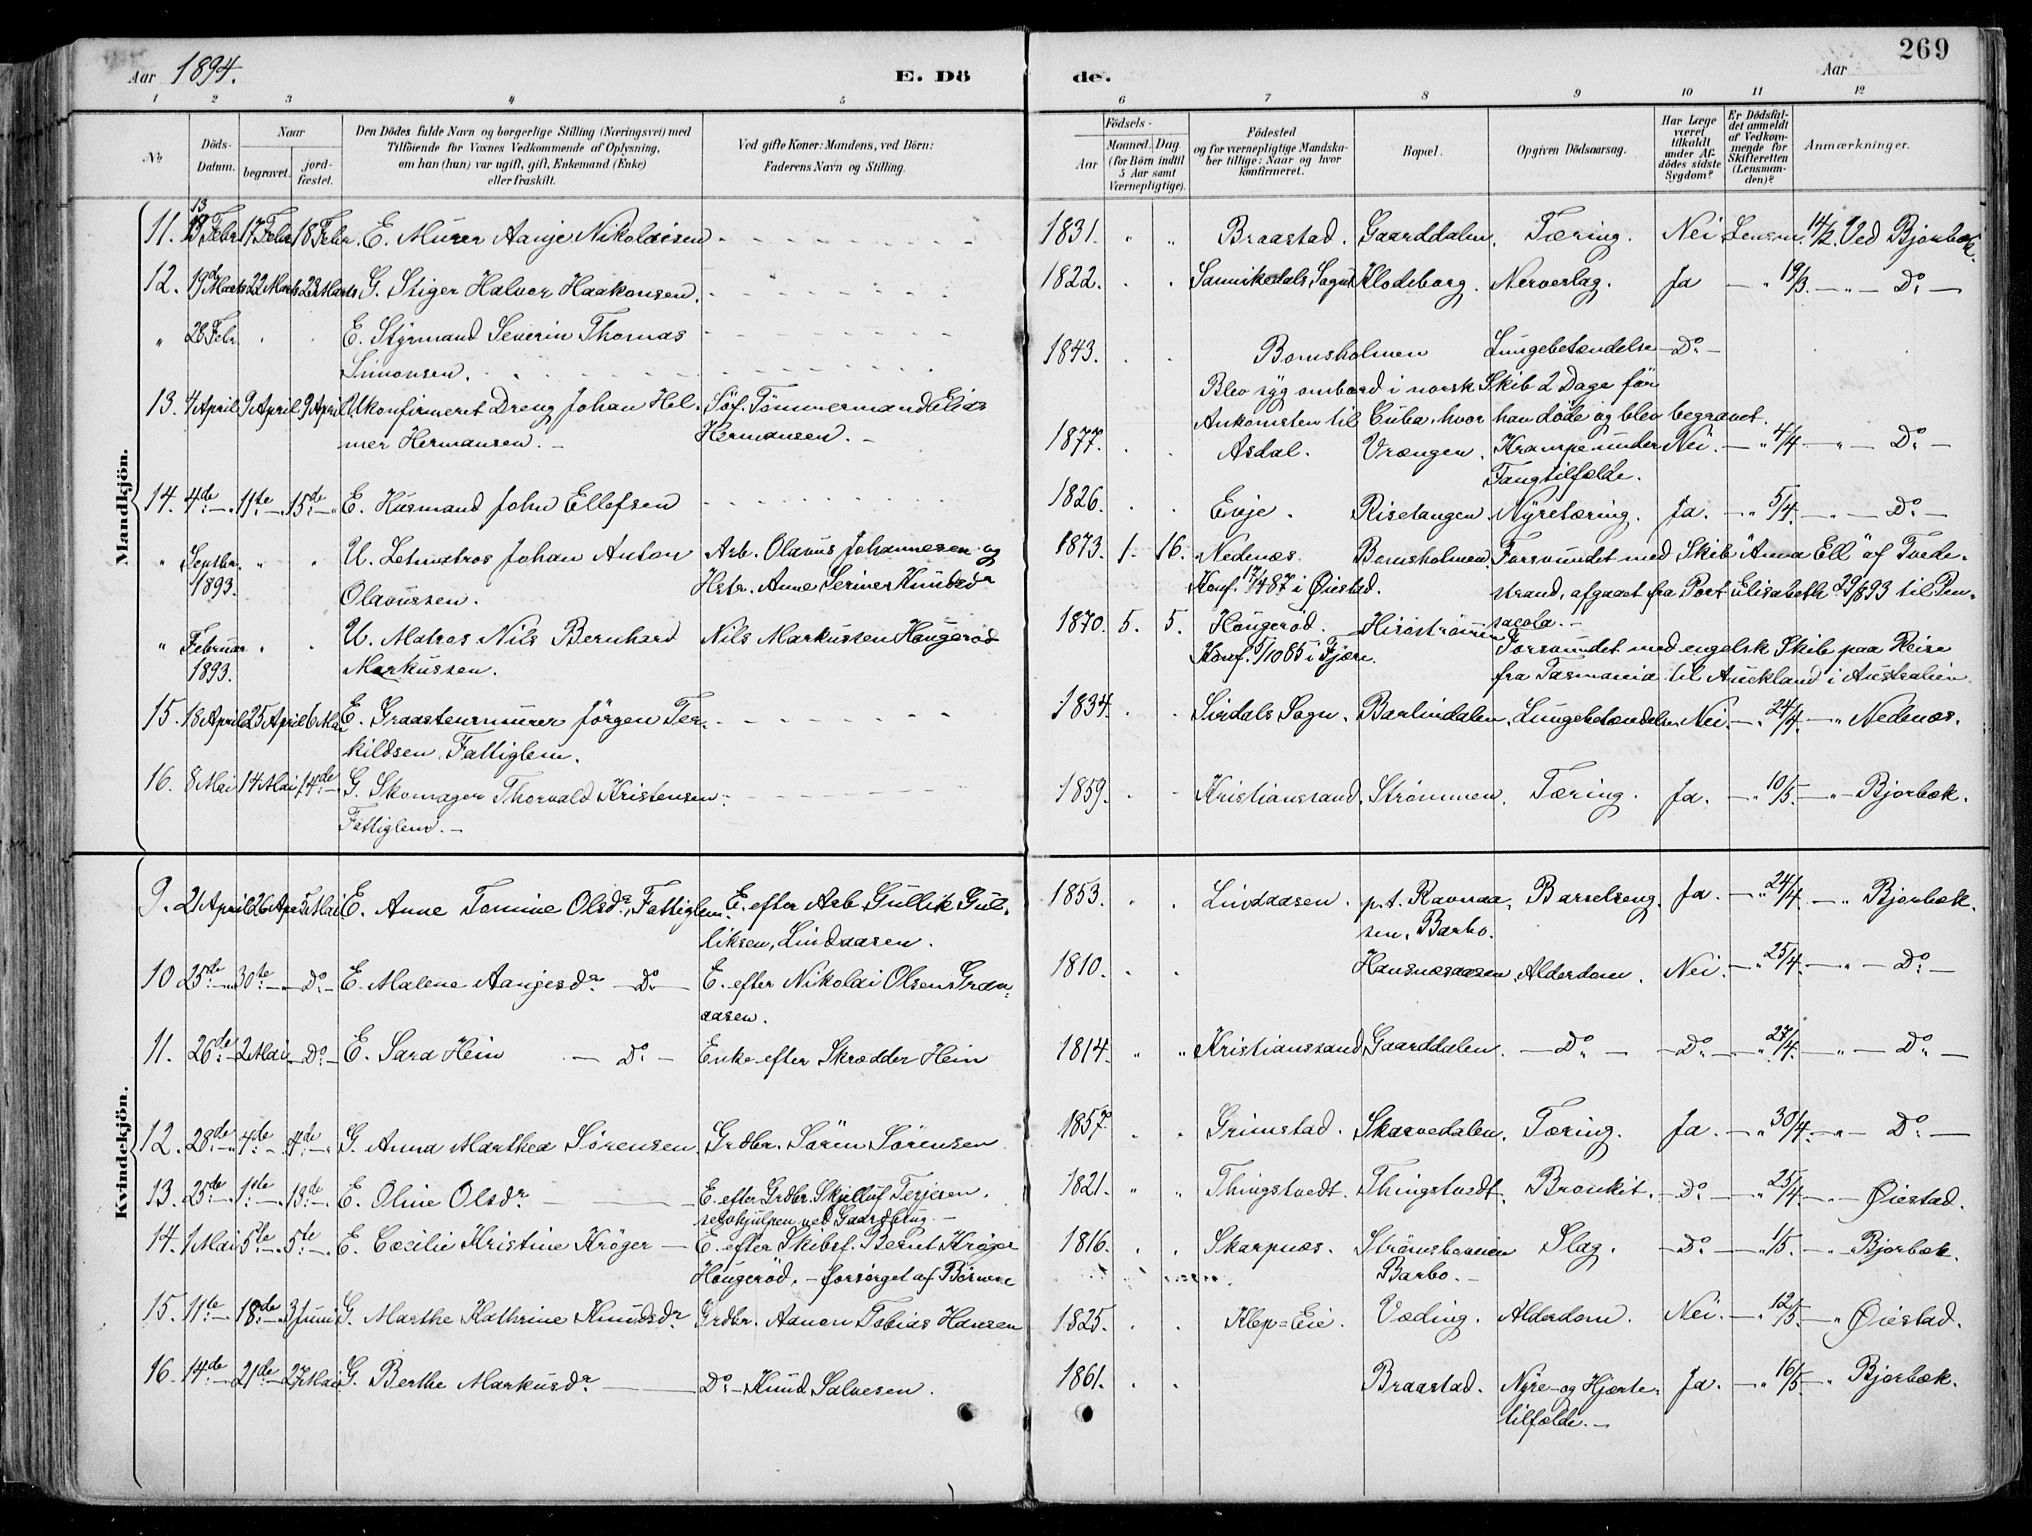 269
Aar 1894. E. Dö
de. Aar
1 2 3 4 5 6 7 8 9 10 11 12
No.
Döds-Datum.
Naar
begravet.
jord-fæstet.
Den Dödes fulde Navn og borgerlige Stilling (Næringsvei) med
Tilföiende for Voxnes Vedkommende af Oplysning,
om han (hun) var ugift, gift, Enkemand (Enke)
eller fraskilt.
Ved gifte Koner: Mandens, ved Börn:
Faderens Navn og Stilling.
Födsels-
Aar
Maaned. Dag.
(for Börn indtil
5 Aar samt
Værnepligtige).
Födested
og for værnepligtige Mandska-
ber tillige: Naar og hvor
konfirmeret.
Bopæl.
Opgiven Dödsaarsag.
Har Læge
været
tilkaldt
under Af-
dödes sidste
Sygdom?
Er Dödsfal-
det anmeldt
af Vedkom-
mende for
Skifteretten
(Lensman-
den)?
Anmærkninger.
Mandkjön.
11. 13 Febr. 17 Febr 18 Febr. E. Murer Aanje Nikolaisen 1831. " " Braastad. Gaarddalen. Tæring. Nei Lensm. 14/2. Ved Bjorbæk.
12. 19de Marts 22 Marts 23 Marts G. Stiger Halvor Haakonsen. 1822. Sannikedals Sogn Klodeborg. Nerveslag. Ja — " 19/3. — " — Do —
" 28 Febr. E. Styrmand Severin Thomas
Simonsen. 1843. Bomsholmen Lungebetændelse — Do —
Blev syg ombord i norsk Skib 2 Dage før
Ankomsten til Cuba, hvor han døde og blev begravet.
13. 4 April 9 April 9 April. Ukonfirmeret Dreng Johan Hel-
mer Hermansen. — Søf. Tømmermand Elias
Hermansen. — 1877. Asdal. Vrængen. Krampe under
Fangtilfælde. Nei. — " 4/4 — " — Do —
14. 4de — " 11te — 15de — " E. Husmand John Ellefsen 1826. Evje. Risetangen. Nyretæring. Ja. — " 5/4. — " — Do —
" Septbr. 1893. " U. Letmatros Johan Anton
Olavussen. Arb. Olavus Johannesen og
Hstr. Anne Serine Knudsdr 1873. 1. 16. Nedenæs. Bomsholmen. Forsvundet med Skib "Anna Ell" af Tvede-
Konf. 17/4 87 i Øiestad. strand, afgaaet fra Port Elisabeth 29/8 93 til Pen-
sacola. —
" Februar 1893. " U. Matros Nils Bernhard
Markussen. Nils Markussen Haugerød 1870. 5. 5. Haugerød. Hisøstrømmen Forsvundet med engelsk Skib paa Reise
Konf. 5/10 85 i Fjære. fra Tasmania til Auckland i Australien.
15. 18 April 25 April 6 Mai E. Graastensmurer Jørgen Ter-
kildsen, Fattiglem. 1834. Sirdals Sogn. Barlindalen. Lungebetændelse Nei. — " 24/4. — " Nedenæs.
16. 8 Mai 14 Mai 14de — " G. Skomager Thorvald Kristensen
Fattiglem. — 1859. Kristianssand. Strømmen. Tæring. Ja. — " 10/5. — " — Bjorbæk.
Kvindekjön.
9. 21 April 26 Apr 5 Mai E. Anne Tomine Olsdr, Fattiglem. E. efter Arb. Gullik Gul-
liksen, Lindaasen. 1853. Lindaasen. p.t. Ravnaa-
sen, Barbo. Barselseng. Ja. — " 24/4 — " Bjorbæk.
10 25de — " 30te — " — Do — E. Malene Aanjesdr — Do — E. efter Nikolai Olsen Gran-
aasen. 1810. Hansnæsaasen. Alderdom. Nei. — " 25/4. — " — Do —
11. 26de — 2 Mai — Do — E. Sara Hein — Do — Enke efter Skrædder Hein 1814. " " Kristianssand Gaarddalen. — Do — — Do — " 27/4. " — Do —
12. 28de — " 4de — 4de — " G. Anna Marthea Sørensen. Grdbr. Søren Sørensen 1857. Grimstad. Skarvedalen. Tæring. Ja. — " 30/4. — " — Do —
13. 25de — " 1ste — " 13de — E. Oline Olsdr — E. efter Grdbr. Skjelluf Terjesen,
selvhjulpen ved Gaardbrug. — 1821. " " Thingstvedt. Thingstvedt. Bronkit. — Do — " 25/4. — " — Øiestad.
14. 1 Mai 5te — " 5te — " E. Cæcilie Kristine Krøger — E. efter Skibsf. Bernt Krøger
Haugerød, — forsørget af Børnene 1816. Skarpnæs. Strømsbuneien
Barbo. — Slag. — Do — " 1/5. — " Bjorbæk.
15. 11te — " 18de — " 3 Juni G. Marthe Kathrine Knudsdr Grdbr. Aanon Tobias Hansen 1825. Klep-Eie. Væding. Alderdom. Nei. — " 12/5. — " Øiestad.
16 14de — 21de — " 27 Mai G. Berthe Markusdr — Do — Knud Salvesen. 1861. Braastad. Nyre- og Hjerte-
tilfælde. — Ja. — " 16/5. — " Bjorbæk.